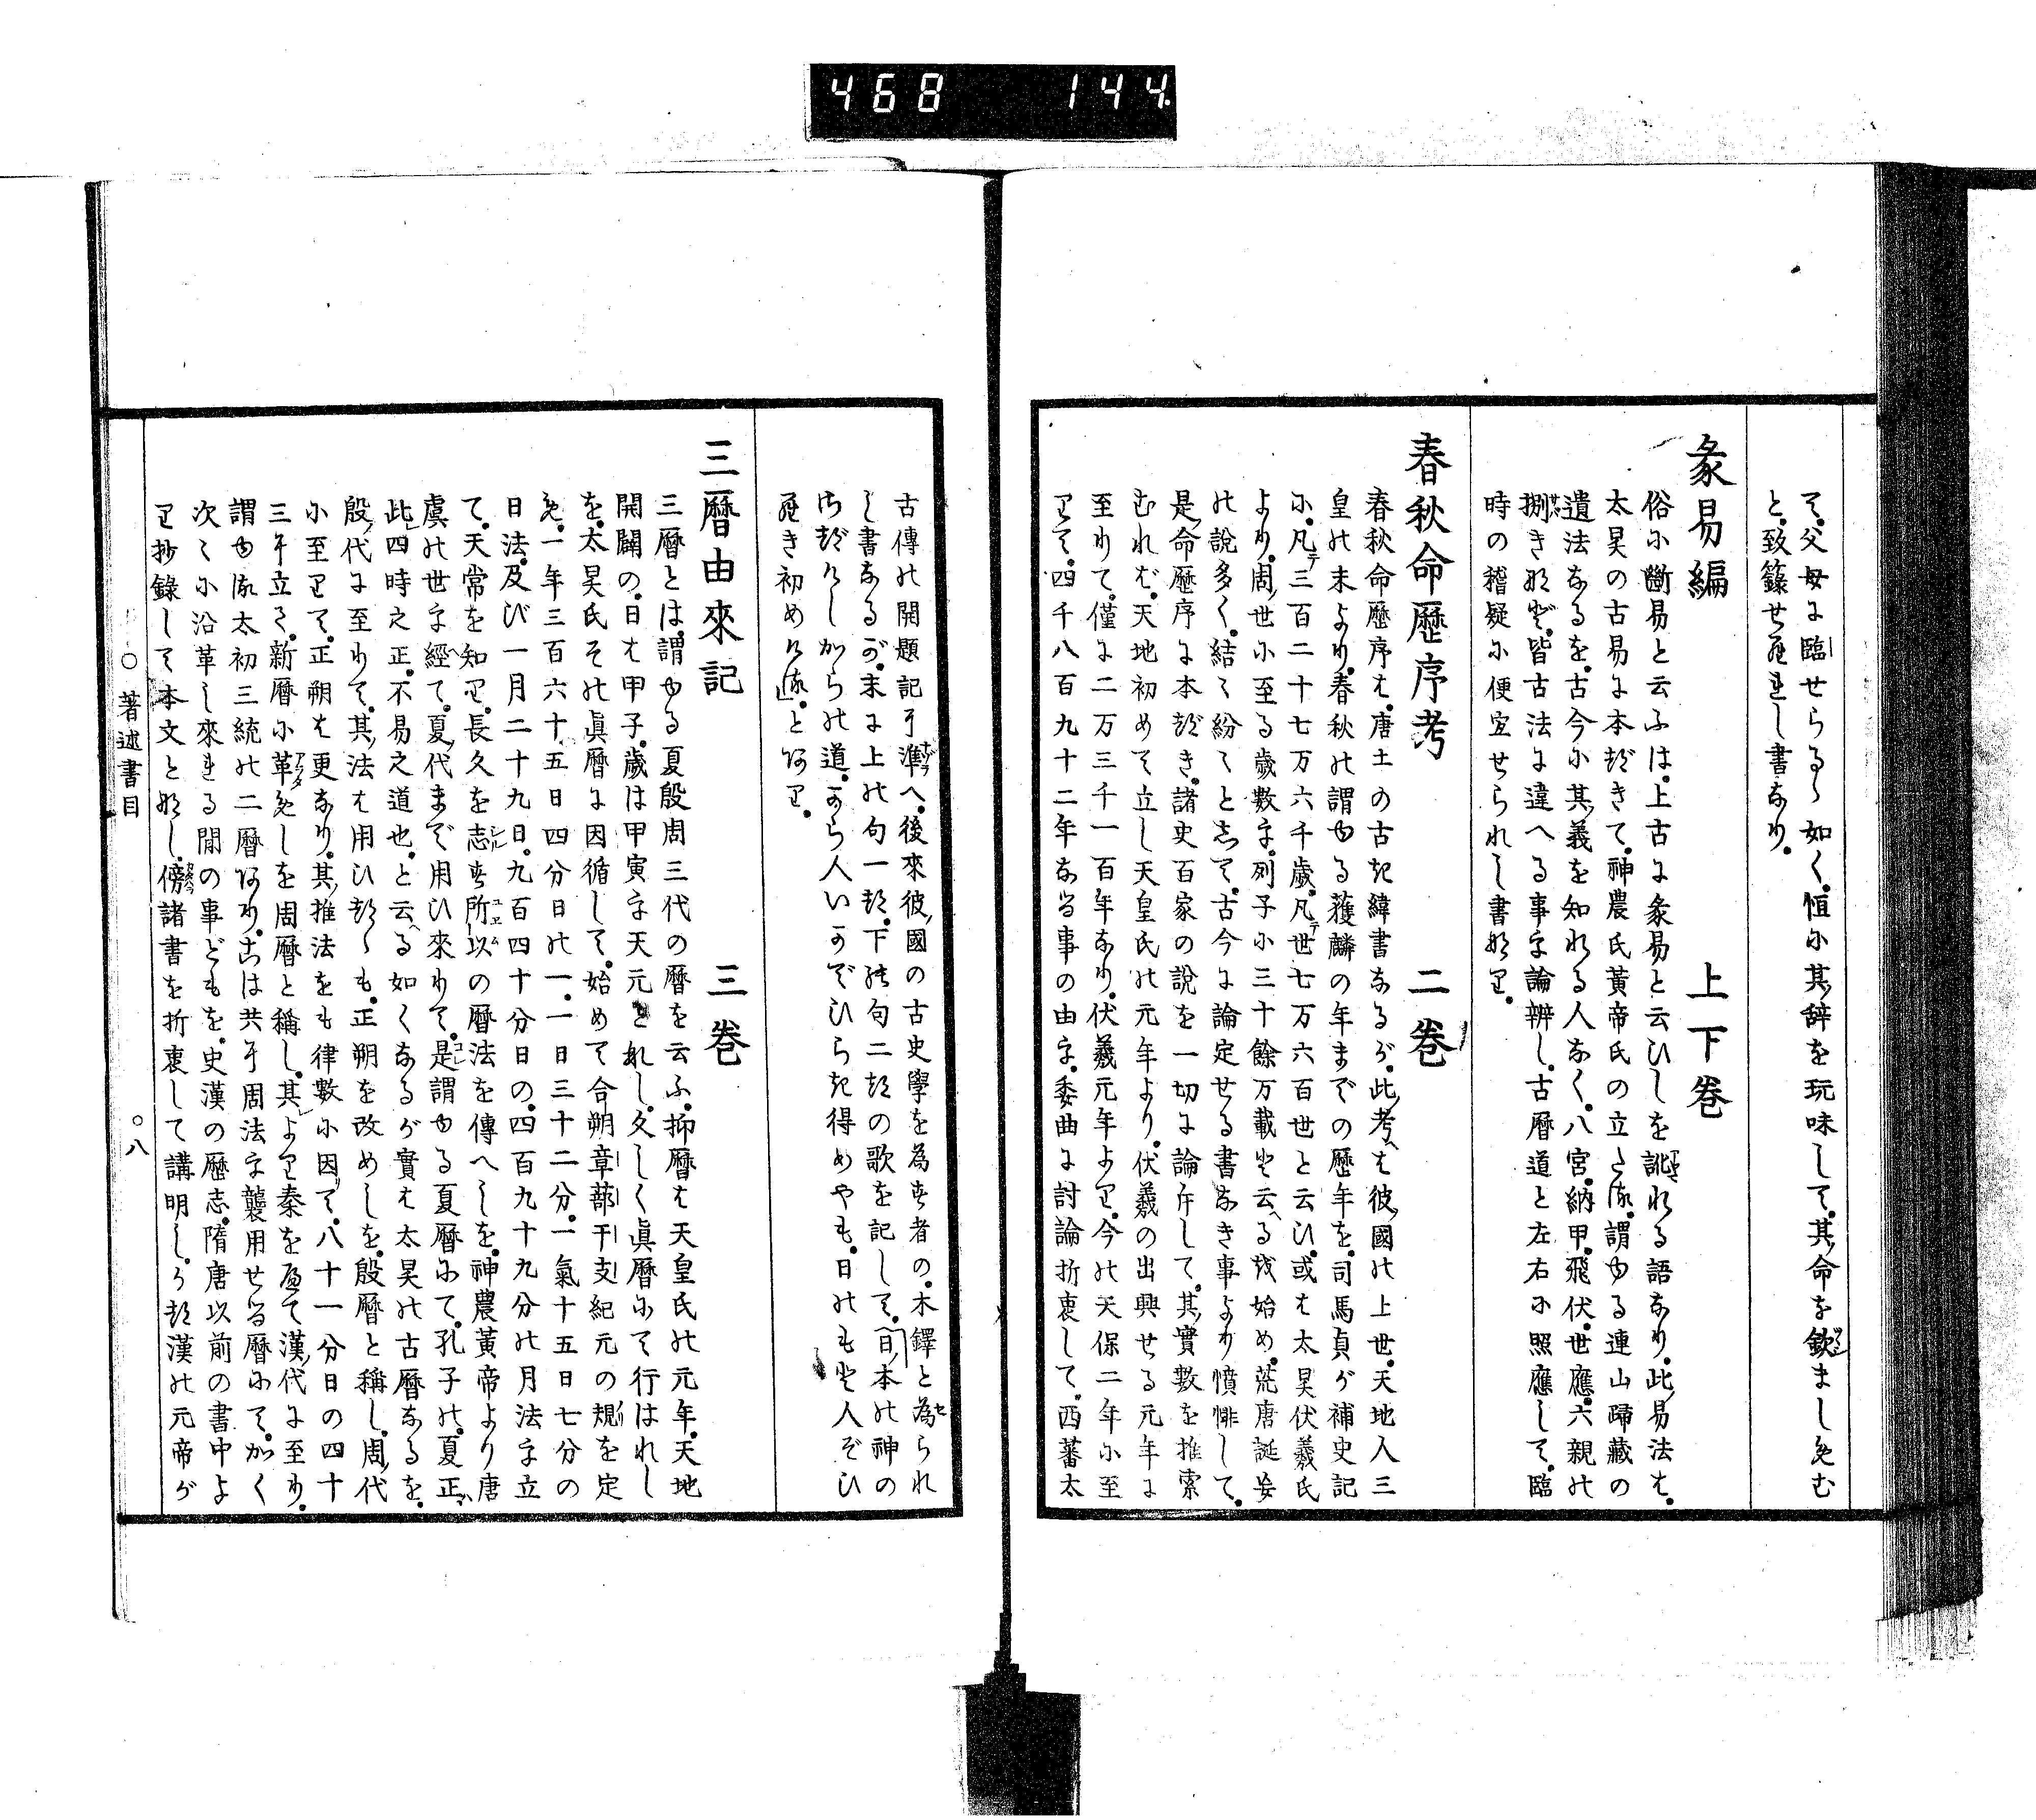 468 144
て。父母に臨せらるゝ如く。恒に其辭を玩味して。其命を欽ましめむ
と。致籙せ座まし書なり。
彖易編 上下卷
俗に斷易と云ふは。上古に彖易と云ひしを訛れる語なり。此易法は。
太昊の古易に本づきて。神農氏黃帝氏の立たる。謂ゆる連山歸藏の
遺法なるを。古今に其義を知れる人なく。八宮。納甲。飛伏。世應。六親の
捌き など。皆古法に違へる事を論辨し。古曆道と左右に照應して。臨
時の稽疑に便宜せられし書なり。
春秋命歷序考 二卷
春秋命歷序は。唐土の古き緯書なるが。此考へは彼國の上世。天地人三
皇の末より。春秋の謂ゆる獲麟の年までの歷年を。司馬貞が補史記
に。凡テ三百二十七万六千歲。凡テ世七万六百世と云ひ。或は太昊伏羲氏
より。周世に至る歲數を。列子に三十餘万載と云へるを始め。荒唐誕妄
の說多く。結々紛々として。古今に論定せる書なき事より憤悱して。
是命歷序に本づき。諸史百家の說を一切に論斤して。其實數を推索
むれば。天地初めて立し天皇氏の元年より。伏羲の出興せる元年に
至りて。僅に二万三千一百年なり。伏羲元年より。今の天保二年に至
りて。四千八百九十二年なる事の由を。委曲に討論折衷して。西蕃太
古傳の開題記に准へ。後來彼國の古史學を為す者の。木鐸と為られ
し書なるが。末に上の句一つ。下の句二つの歌を記して。日本の神の
御 けしからの道。から人いかでひらき得めやも。日のもと人ぞひ
らき初めける。とあり。
三曆由來記 三卷
三曆とは。謂ゆる夏殷周三代の曆を云ふ。抑曆は天皇氏の元年。天地
開闢の。日は甲子。歲は甲寅を天元とれし。久しく眞曆にて行はれし
を。太昊氏その眞曆に因循して。始めて合朔章蔀干支紀元の規を定
め。一年三百六十五日四分日の一。一日三十二分。一氣十五日七分の
日法。及び一月二十九日。九百四十分日の。四百九十九分の月法を立
て。天常を知り。長久を志す所以の曆法を傳へしを。神農黃帝より唐
虞の世を經て。夏代まで用ひ來りて。是謂ゆる夏曆にて。孔子の。夏正
此四時之正。不易之道也。と云へる如くなるが實は太昊の古曆なるを。
殷代に至りて。其法は用ひつゝも。正朔を改めしを。殷曆と稱し。周代
に至りて。正朔は更なり。其推法をも律數に因て。八十一分日の四十
三を立て。新曆に革めしを周曆と稱し。其より秦を歷て漢代に至り。
謂ゆる太初三統の二曆あり。こは共に周法を襲用せる曆にて。かく
次々に沿革し來まる間の事どもを。史漢の歷志。隋唐以前の書中よ
り抄錄して本文となし。傍諸書を折衷して講明し。かつ漢の元帝が
○著述書目 ○八